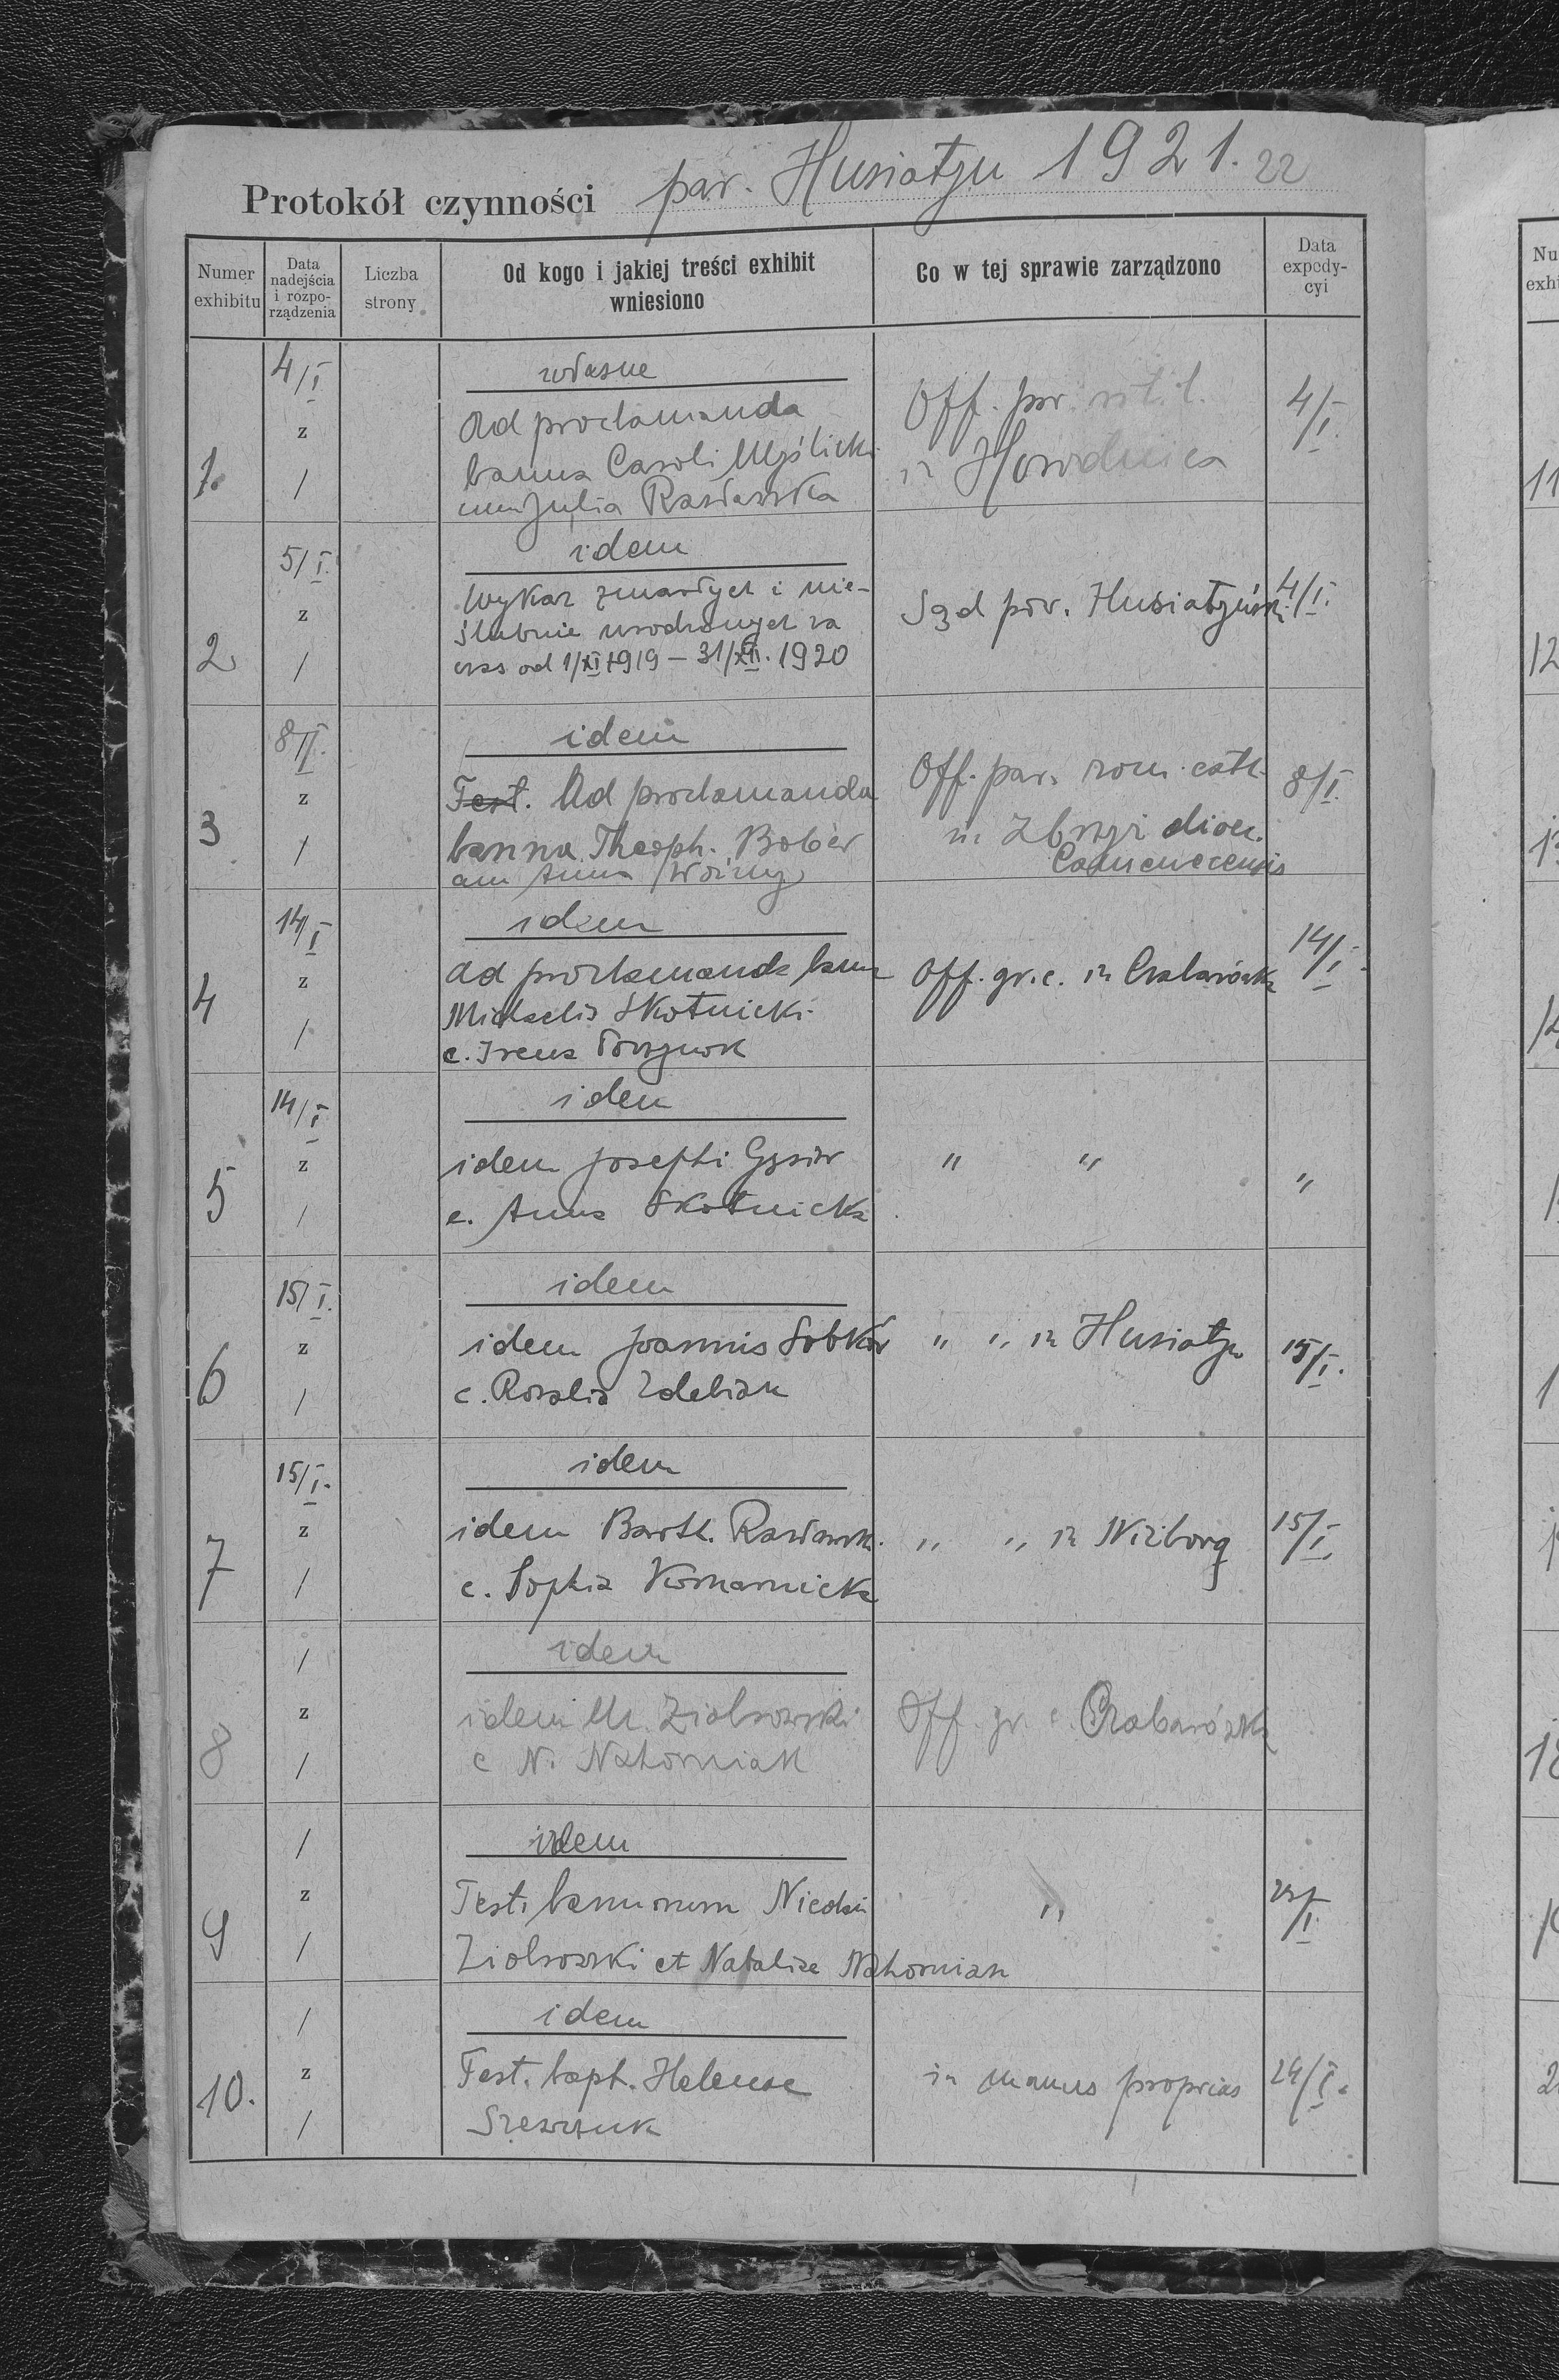 Protokół czynności par. Husiatyn 1921. 22
Numer exhibitu
Data nadejścia i rozpo- rządzenia
Liczba strony
Od kogo i jakiej treści exhibit wniesiono
Co w tej sprawie zarządzono
Data expedy- cyi
1.
4/I.
z
/
własne
Ad proclamanda
banna Caroli Myślicki
cum Julia Rawska
Off. par. rit. l.
in Horodnica
4/I.
2
5/I.
z
/
idem
Wykaz zmarłych i nie-
ślubnie urodzonych za
czas od 1/XI 1919 – 31/XII. 1920
Sąd pow. Husiatyńsk.
4/I.
3
8/I.
z
/
idem
Test. Ad proclamanda
banna Theoph. Bober
cum Anna Woźny
Off. par. rom. cath.
in Zbrzyż dioec.
Camenecensis
8/I.
4
14/I
z
/
idem
ad proclamanda bann
Michaelis Skotnicki
c. Irena
Off. gr. c. in Czabarówka
14/I.
5
14/I
z
/
idem
idem Josephi Gąsior
c. Anna Skotnicka
" "
"
6
15/I.
z
/
idem
idem Joannis Sobków
c. Rozalia Zdebiak
" " in Husiatyn
15/I.
7
15/I.
z
/
idem
idem Barth.
c. Sophia Komarnicka
" " in Niżborg
15/I.
8
/
z
/
idem
idem M. Ziobrowski
c N. Nahorniak
Off. gr. c. Czabarówka
9
/
z
/
idem
Test. bannorum
Ziobrowski et Nataliae Nahorniak
"
/I.
10.
/
z
/
idem
Test. bapt. Helenae
Szewczuk
in manus proprias
24/I.
Nu
exhi
11
12